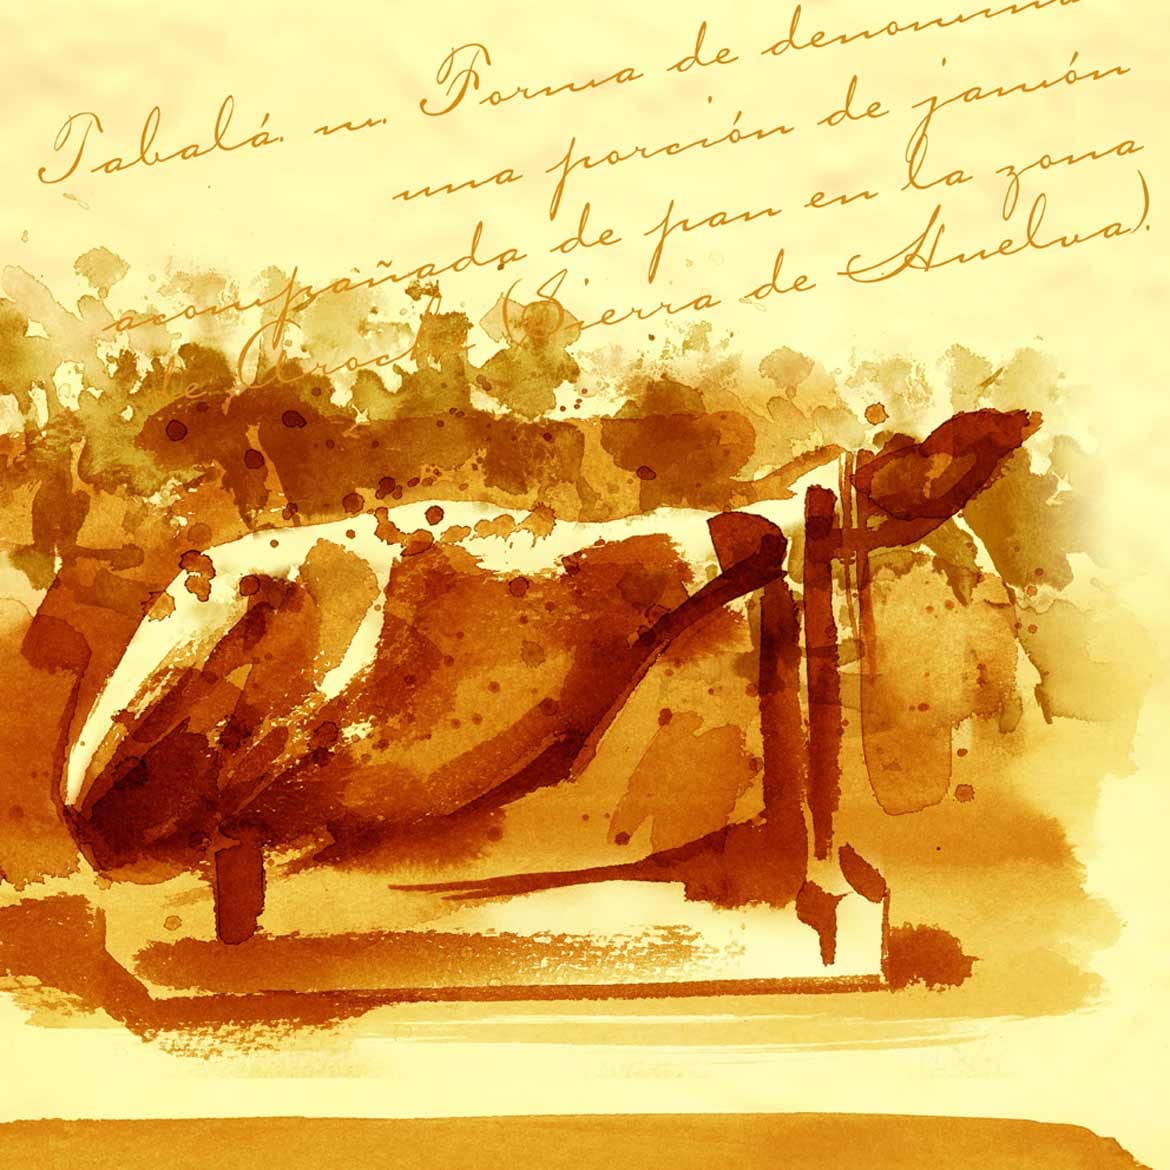 Tabalá. m. Forma de denomina
una porción de jamón
acompañada de pan en la zona
de Aroche (Sierra de Huelva).